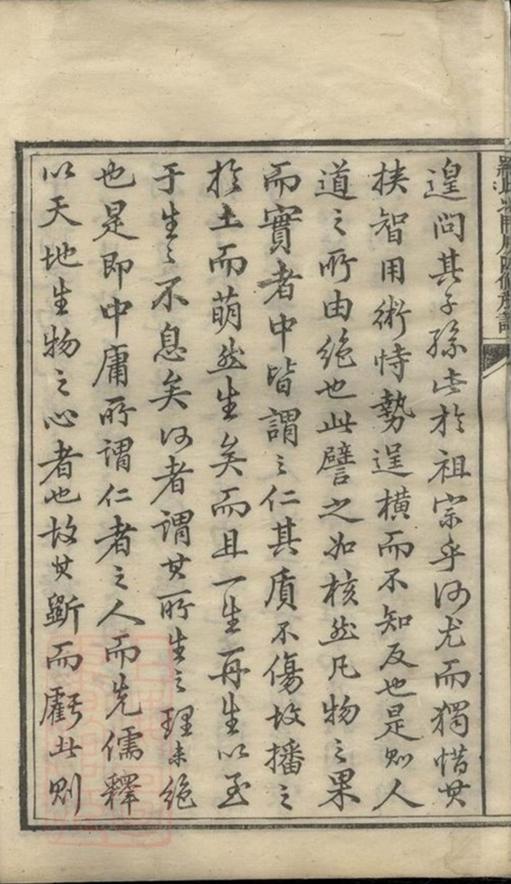 遑問其子孫之於祖宗乎何尤而獨惜其
挟智用術恃勢逞横而不知反也是則人
道之所由絶也此譬之如核然凡物之果
而實者中皆謂之仁其質不傷故播之
於土而萌然生矣而且一生再生以至
于生之不息矣何者謂其所生之理未絶
也是即中庸所謂仁者之人而先儒釋
以天地生物之心者也故其斷而虧此則